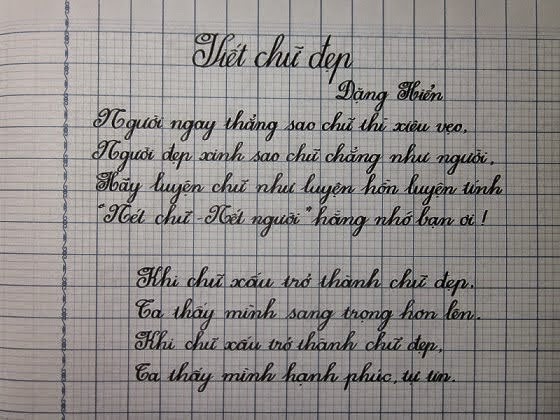 Viết chữ đẹp
Đặng Hiển
Người ngay thẳng sao chữ thì xiêu vẹo,
Người đẹp xinh sao chữ chẳng như người,
Hãy luyện chữ như luyện hồn luyện tính
"Nét chữ - Nết người" hằng nhớ bạn ơi!
Khi chữ xấu trở thành chữ đẹp,
Ta thấy mình sang trọng hơn lên.
Khi chữ xấu trở thành chữ đẹp,
Ta thấy mình hạnh phúc, tự tin.